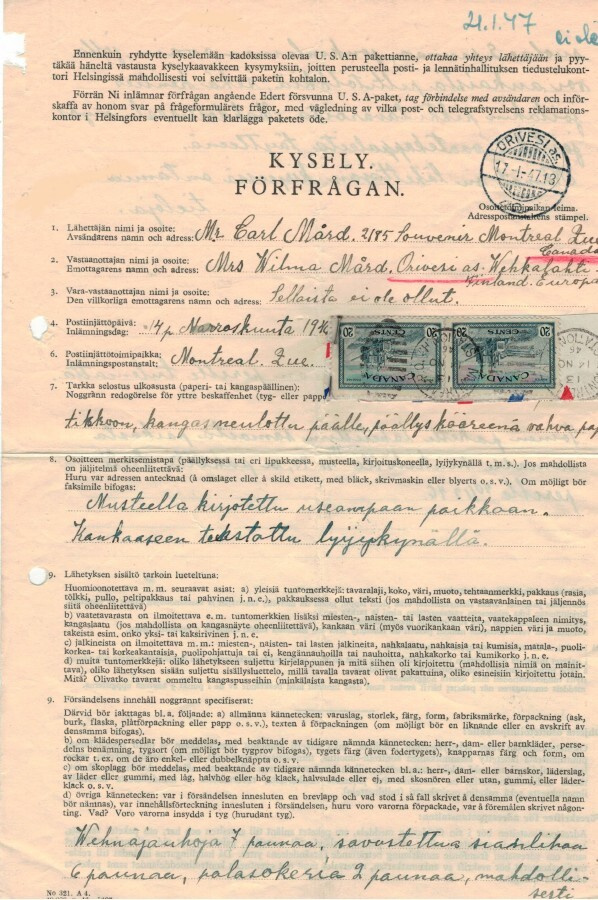 21.1.47
ei ole
Ennenkuin ryhdytte kyselemään kadoksissa olevaa U.S.A:n pakettianne, ottakaa yhteys lähettäjään ja pyy-
täkää häneltä vastausta kyselykaavakkeen kysymyksiin, joitten perusteella posti- ja lennätinhallituksen tiedustelukont-
tori Helsingissä mahdollisesti voi selvittää paketin kohtalon.
Förrän Ni inlämnar förfrågan angående Edert försvunna U.S.A-paket, tag förbindelse med avsändaren och inför-
skaffa av honom svar på frågeformulärets frågor, med vägledning av vilka post- och telegrafstyrelsens reklamations-
kontor i Helsingfors eventuellt kan klarlägga paketets öde.
KYSELY.
FÖRFRÅGAN.
ORIVESI as.
17.-I-47.13
Osoitetoimipaikan leima.
Adresspostanstaltens stämpel.
1. Lähettäjän nimi ja osoite:
Avsändarens namn och adress: Mr Carl Mård. 2185 Souvenir Montreal Que
Canada
2. Vastaanottajan nimi ja osoite:
Emottagarens namn och adress: Mrs Wilma Mård. Orivesi as. Vehkalahti.
Finland. Europa
3. Vara-vastaanottajan nimi ja osoite:
Den villkorliga emottagarens namn och adress: Sellaista ei ole ollut.
4. Postiinjättöpäivä:
Inlämningsdag: 14 p Marraskuuta 1946
6. Postiinjättötoimipaikka:
Inlämningspostanstalt: Montreal. Que.
20 CENTS CANADA
20 CENTS CANADA
7. Tarkka selostus ulkoasusta (paperi- tai kangaspäällinen):
Noggrann redogörelse för yttre beskaffenhet (tyg- eller pappe
tikkoon, kangas neulottu päälle, päällyskääreenä vahva pap
8. Osoitteen merkitsemistapa (päällyksessä tai eri lipukkeessa, musteella, kirjoituskoneella, lyijykynällä t.m.s.). Jos mahdollista
on jäljitelmä oheenliitettävä:
Huru var adressen antecknad (å omslaget eller å skild etikett, med bläck, skrivmaskin eller blyerts o.s.v.). Om möjligt bör
faksimile bifogas:
Musteella kirjotettu useampaan paikkaan.
Kankaaseen tekstattu lyijykynällä.
9. Lähetyksen sisältö tarkoin lueteltuna:
Huomioonotettava m.m. seuraavat asiat: a) yleisiä tuntomerkkejä: tavaralaji, koko, väri, muoto, tehtaanmerkki, pakkaus (rasia,
tölkki, pullo, peltipakkaus tai pahvinen j.n.e.), pakkauksessa ollut teksti (jos mahdollista on vastaavanlainen tai jäljennös
siitä oheenliitettävä)
b) vaatetavarasta on ilmoitettava e.m. tuntomerkkien lisäksi miesten-, naisten- tai lasten vaatteita, vaatekappaleen nimitys,
kangaslaatu (jos mahdollista on kangasnäyte oheenliitettävä), kankaan väri (myös vuorikankaan väri), nappien väri ja muoto,
takeista esim. onko yksi- tai kaksirivinen j.n.e.
c) jalkineista on ilmoitettava m.m.: miesten-, naisten- tai lasten jalkineita, nahkalaatu, nahkaisia tai kumisia, matala-, puoli-
korkea- tai korkeakantaisia, puolipohjattuja tai ei, kengännauhoilla tai nauhoitta, nahkakorko tai kumikorko j.n.e.
d) muita tuntomerkkejä: oliko lähetykseen suljettu kirjelappunen ja mitä siihen oli kirjoitettu (mahdollisia nimiä on mainit-
tava), oliko lähetyksen sisään suljettu sisällysluettelo, millä tavalla tavarat olivat pakattuina, oliko esineisiin kirjoitettu jotain.
Mitä? Olivatko tavarat ommeltu kangaspusseihin (minkälaista kangasta).
9. Försändelsens innehåll noggrannt specifiserat:
Därvid bör iakttagas bl.a. följande: a) allmänna kännetecken: varuslag, storlek, färg, form, fabriksmärke, förpackning (ask,
burk, flaska, plåtförpackning eller papp o.s.v.), texten å förpackningen (om möjligt bör en liknande eller en avskrift av
densamma bifogas).
b) om klädespersedlar bör meddelas, med beaktande av tidigare nämnda kännetecken: herr-, dam- eller barnkläder, perse-
delns benämning, tygsort (om möjligt bör tygprov bifogas), tygets färg (även fodertygets), knapparnas färg och form, om
rockar t.ex. om de äro enkel- eller dubbelknäppta o.s.v.
c) om skoplagg bör meddelas, med beaktande av tidigare nämnda kännetecken bl.a.: herr-, dam- eller barnskor, läderslag,
av läder eller gummi, med låg, halvhög eller hög klack, halvsulade eller ej, med skosnören eller utan, gummi, eller läder-
klack o.s.v.
d) övriga kännetecken: var i försändelsen innesluten en brevlapp och vad stod i så fall skrivet å densamma (eventuella namn
bör nämnas), var innehållsförteckning innesluten i försändelsen, huru voro varorna förpackade, var å föremålen skrivet någon-
ting. Vad? Voro varorna insydda i tyg (hurudant tyg).
Wehnäjauhoja 7 paunaa, savustettua sianlihaa
6 paunaa, palasokeria 2 paunaa, mahdolli-
sesti
No 321. A 4.